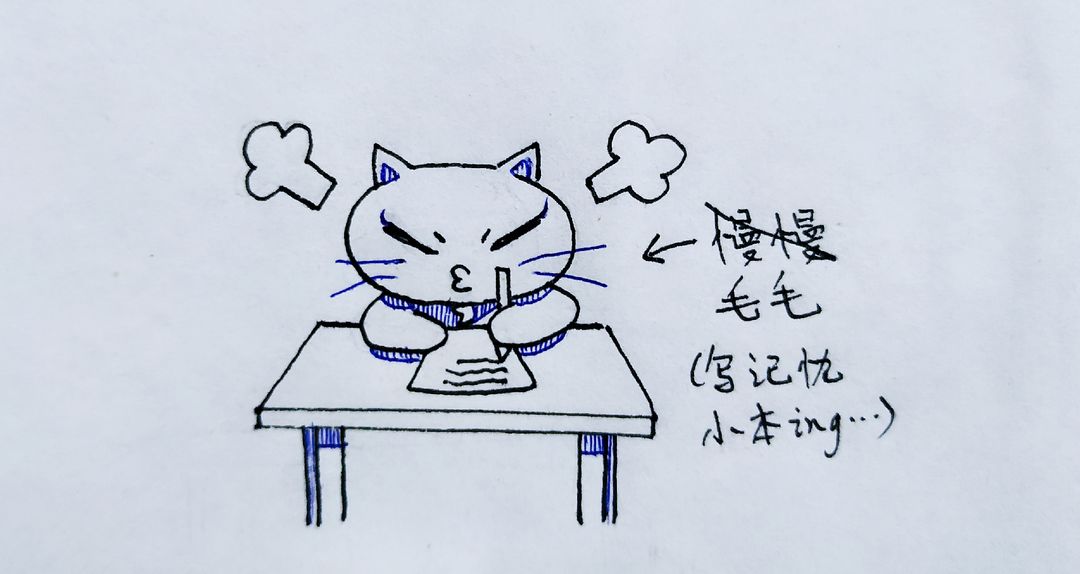 慢慢
毛毛
(写记忆
小本ing…)